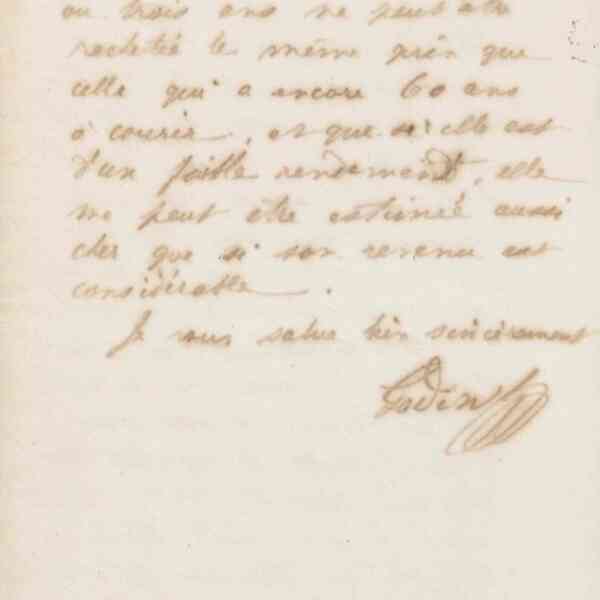 ou trois ans ne peut être
racheté le même prix que
celle qui a encore 60 ans
à courir, et que si elle est
d'un faible rendement, elle
ne peut être estimée aussi
cher que si son revenu est
considérable.
Je vous salue bien sincèrement
Godin